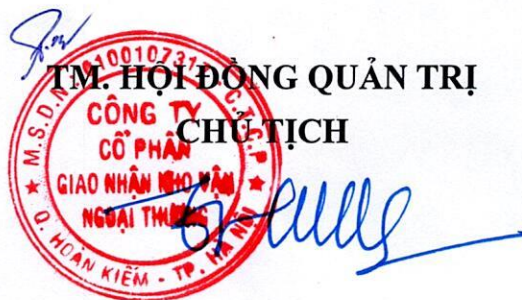 TM. HỘI ĐỒNG QUẢN TRỊ
CHỦ TỊCH
M.S.D.N: 0100107317 - C.T.C.P
CÔNG TY
CỔ PHẦN
GIAO NHẬN KHO VẬN
NGOẠI THƯƠNG
Q. HOÀN KIẾM - TP. HÀ NỘI